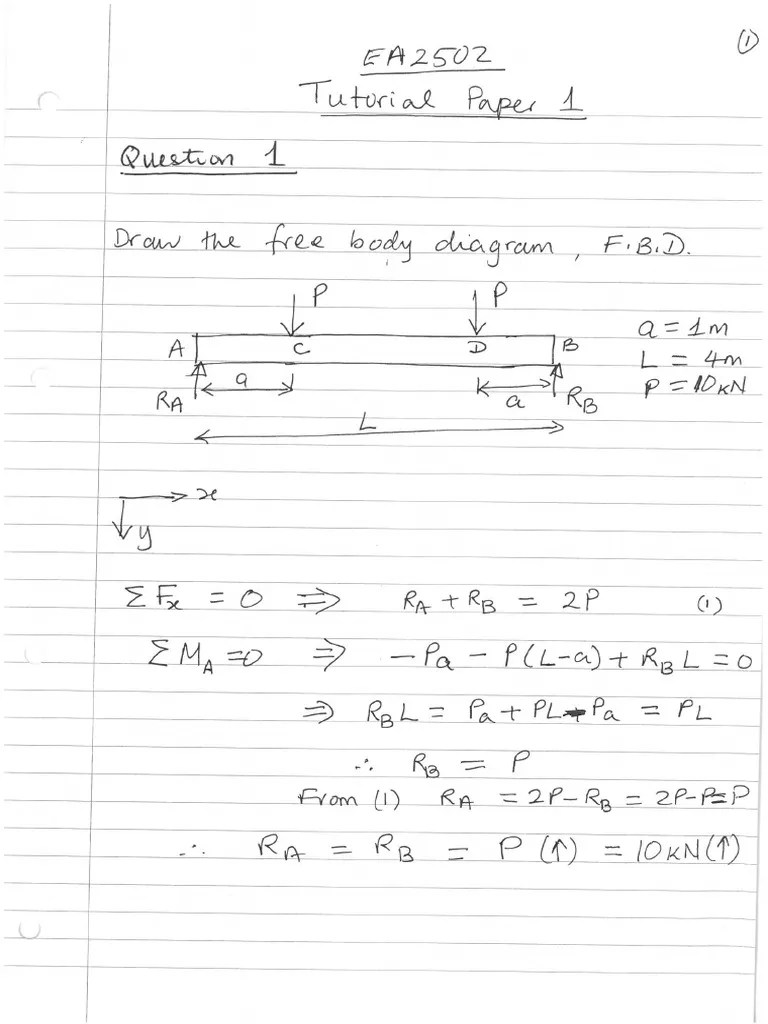 ①
EA2502
Tutorial Paper 1
Question 1
Draw the free body diagram, F.B.D.
P P
A C D B
a = 1m
L = 4m
P = 10kN
R_A a a R_B
L
x
y
ΣF_x = 0 ⇒ R_A + R_B = 2P (1)
ΣM_A = 0 ⇒ -Pa - P(L-a) + R_B L = 0
⇒ R_B L = Pa + PL - Pa = PL
∴ R_B = P
From (1) R_A = 2P - R_B = 2P - P = P
∴ R_A = R_B = P (↑) = 10kN (↑)